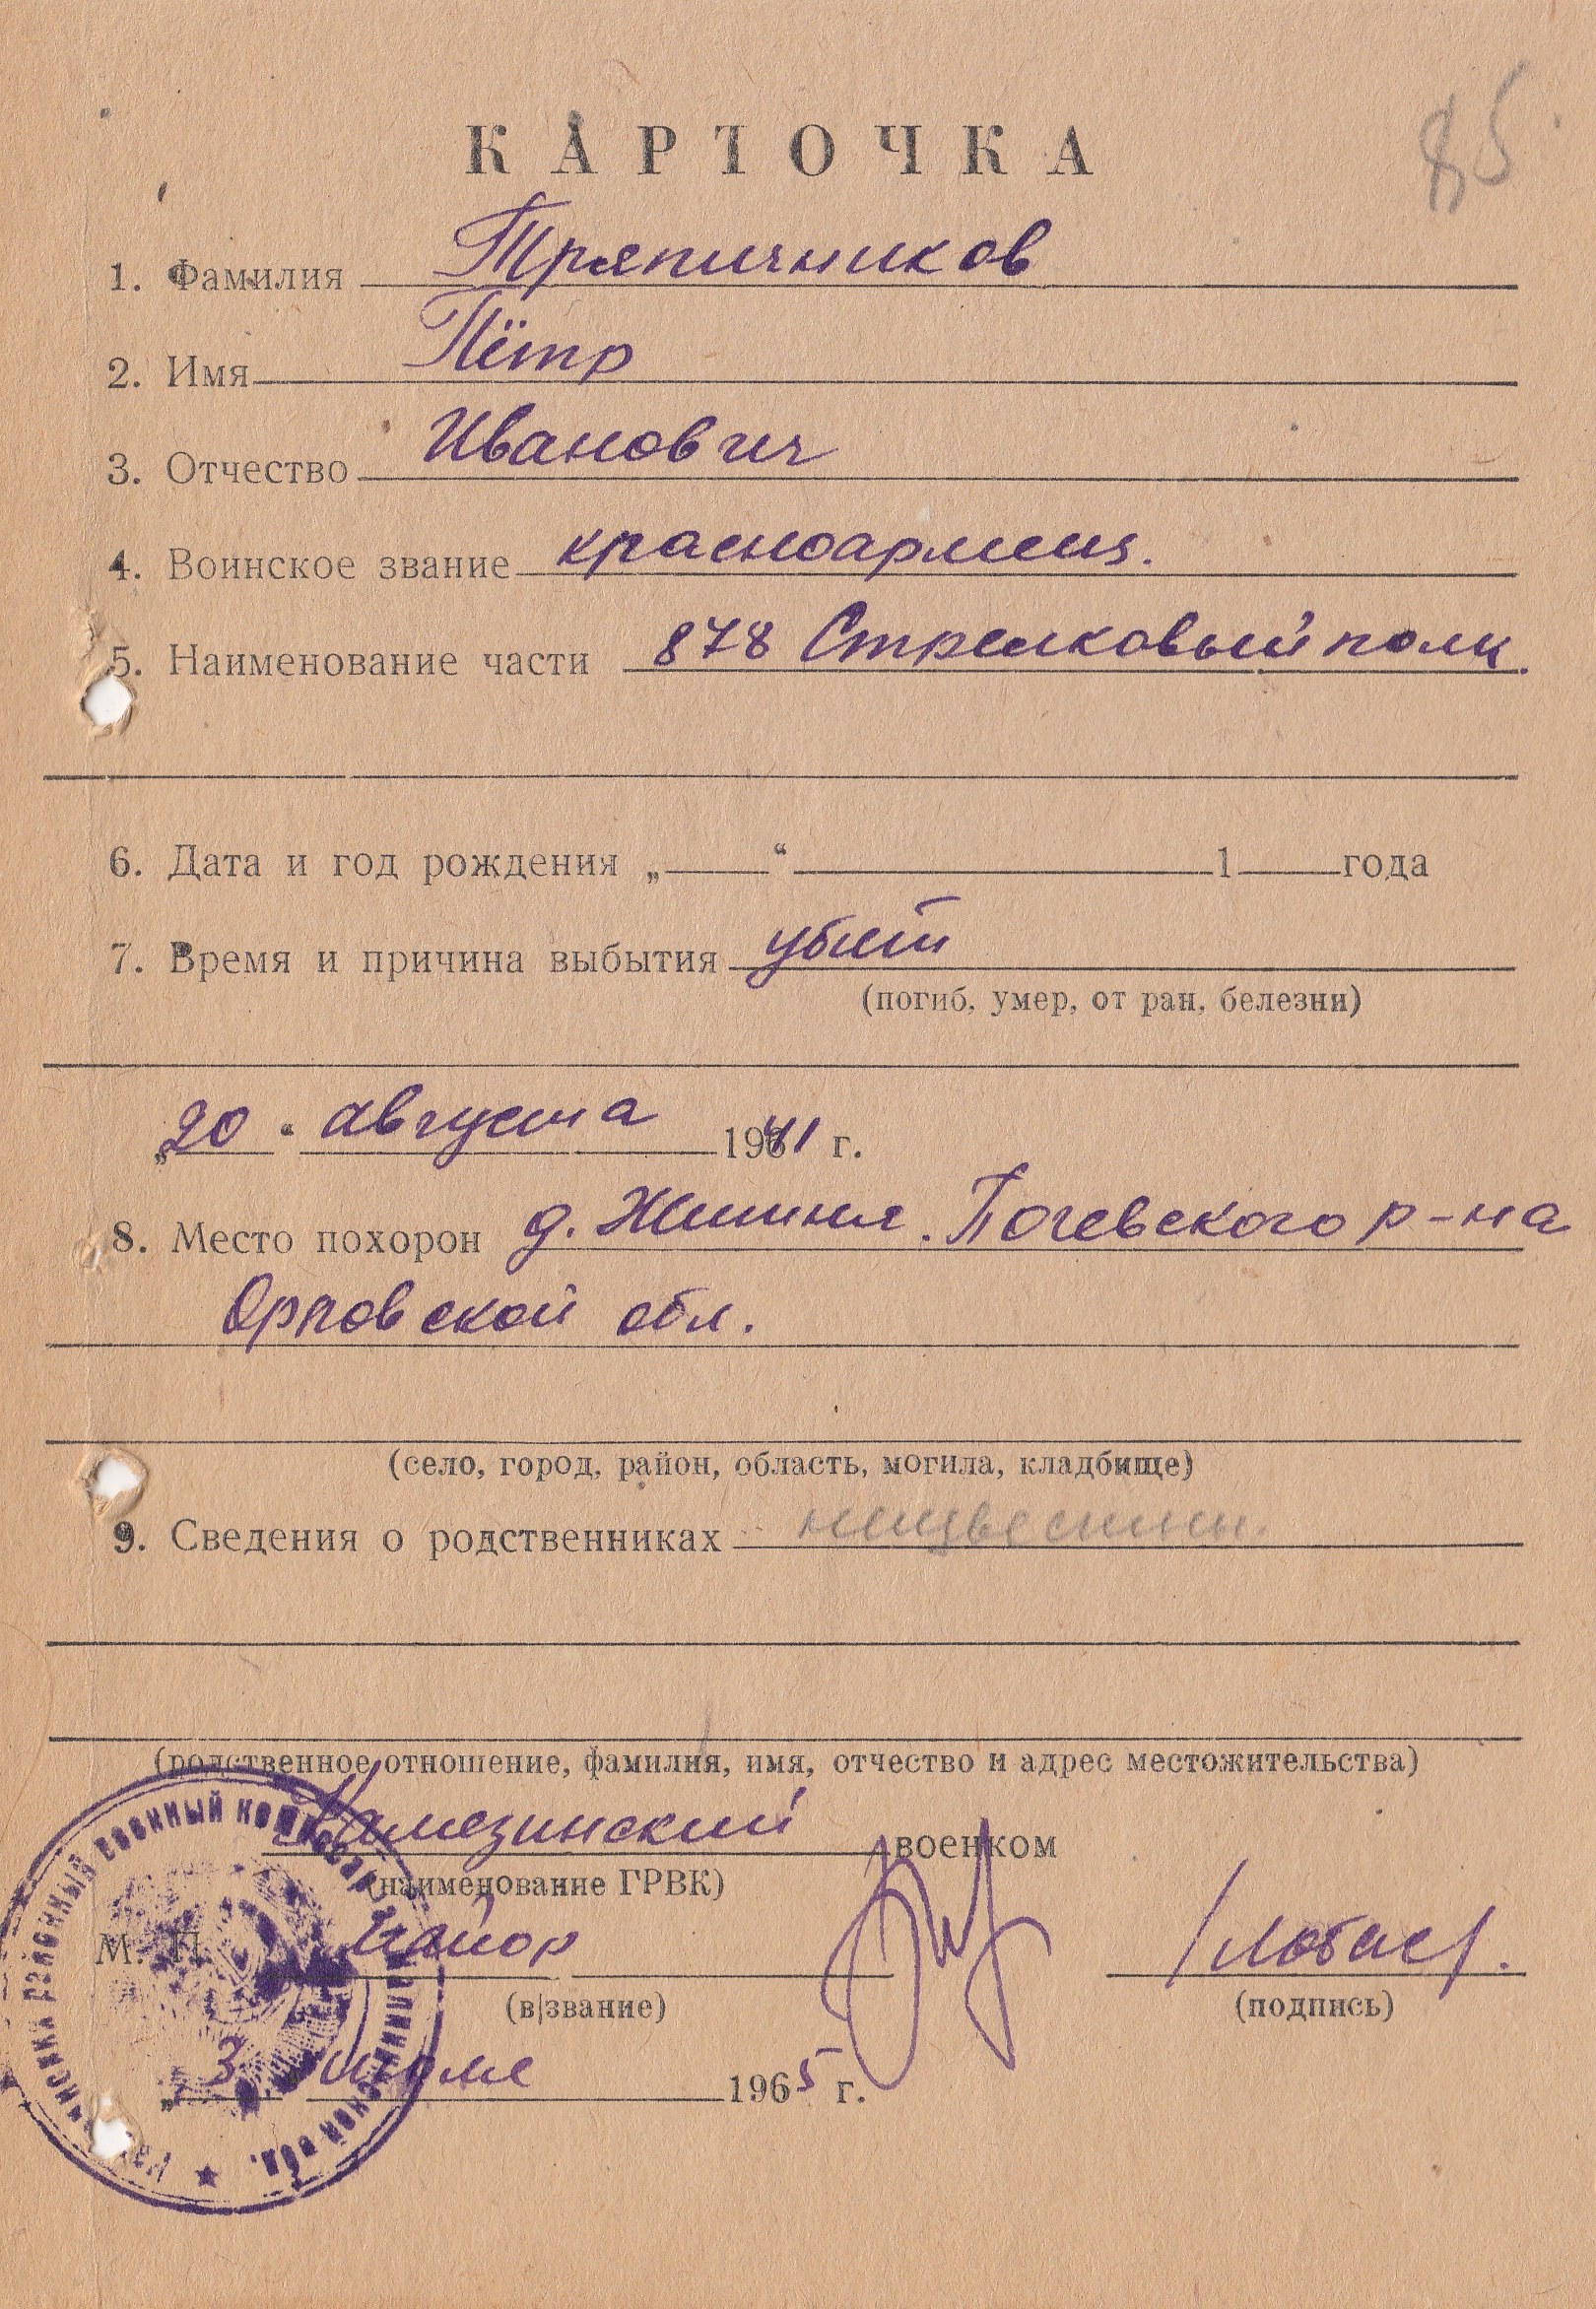 85
КАРТОЧКА
1. Фамилия Тряпичников
2. Имя Пётр
3. Отчество Иванович
4. Воинское звание красноармеец.
5. Наименование части 878 Стрелковый полк.
6. Дата и год рождения „ “ 1 года
7. Время и причина выбытия убит
(погиб, умер, от ран, белезни)
„20“ августа 1941 г.
8. Место похорон д. Жишня. Почевского р-на
Орловской обл.
(село, город, район, область, могила, кладбище)
9. Сведения о родственниках неизвестны.
(родственное отношение, фамилия, имя, отчество и адрес местожительства)
военком
(наименование ГРВК)
М. П. Майор
(в|звание) (подпись)
„3“ июля 1965 г.
районный военный комиссариат